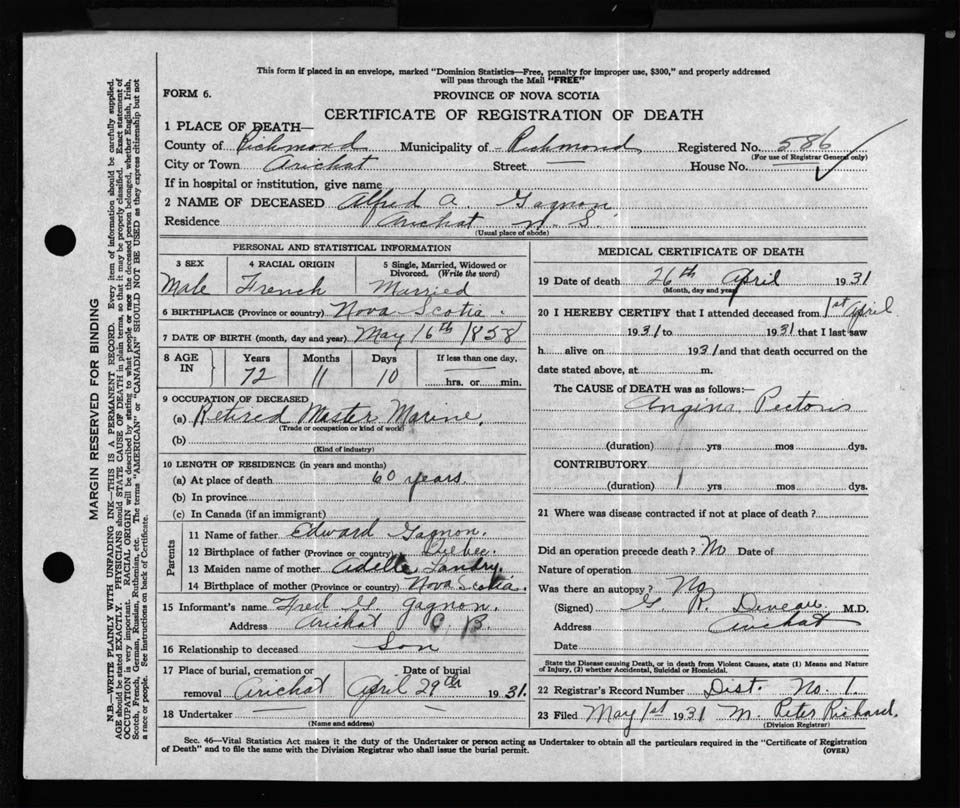 This form if placed in an envelope, marked "Dominion Statistics—Free, penalty for improper use, $300," and properly addressed
will pass through the Mail "FREE"
FORM 6.
PROVINCE OF NOVA SCOTIA
CERTIFICATE OF REGISTRATION OF DEATH
1 PLACE OF DEATH—
County of Richmond Municipality of Richmond Registered No. 586
(For use of Registrar General only)
City or Town Arichat Street — House No. —
If in hospital or institution, give name
2 NAME OF DECEASED Alfred A. Gagnon
Residence Arichat N. S.
(Usual place of abode)
PERSONAL AND STATISTICAL INFORMATION
3 SEX 4 RACIAL ORIGIN 5 Single, Married, Widowed or Divorced. (Write the word)
Male French Married
6 BIRTHPLACE (Province or country) Nova Scotia.
7 DATE OF BIRTH (month, day and year) May 16th 1858
8 AGE IN Years Months Days If less than one day,
72 11 10 hrs. or min.
9 OCCUPATION OF DECEASED
(a) Retired Master Marine.
(Trade or occupation or kind of work)
(b)
(Kind of industry)
10 LENGTH OF RESIDENCE (in years and months)
(a) At place of death 60 years.
(b) In province
(c) In Canada (if an immigrant)
Parents
11 Name of father Edward Gagnon.
12 Birthplace of father (Province or country) Quebec.
13 Maiden name of mother Adelle Landry.
14 Birthplace of mother (Province or country) Nova Scotia.
15 Informant's name Fred G. Gagnon.
Address Arichat C. B.
16 Relationship to deceased Son
17 Place of burial, cremation or removal Arichat Date of burial April 29th 1931.
18 Undertaker —
(Name and address)
MEDICAL CERTIFICATE OF DEATH
19 Date of death 26th April 1931
(Month, day and year)
20 I HEREBY CERTIFY that I attended deceased from 1st April
1931 to 1931 that I last saw
h alive on 1931 and that death occurred on the
date stated above, at m.
The CAUSE OF DEATH was as follows:—
Angina Pectoris
(duration) yrs mos dys.
CONTRIBUTORY
(duration) yrs mos dys.
21 Where was disease contracted if not at place of death?
Did an operation precede death? No Date of
Nature of operation
Was there an autopsy? No
(Signed) G. R. Deveau M.D.
Address Arichat
Date
State the Disease causing Death, or in death from Violent Causes, state (1) Means and Nature
of Injury, (2) whether Accidental, Suicidal or Homicidal.
22 Registrar's Record Number Dist. No. 1.
23 Filed May 1st 1931 M. Peter Richard.
(Division Registrar)
Sec. 46—Vital Statistics Act makes it the duty of the Undertaker or person acting as Undertaker to obtain all the particulars required in the "Certificate of Registration
of Death" and to file the same with the Division Registrar who shall issue the burial permit.
(OVER)
MARGIN RESERVED FOR BINDING
N.B.—WRITE PLAINLY WITH UNFADING INK—THIS IS A PERMANENT RECORD. Every item of information should be carefully supplied.
AGE should be stated EXACTLY. PHYSICIANS should STATE CAUSE OF DEATH in plain terms, so that it may be properly classified. Exact statement of
OCCUPATION is very important. RACIAL ORIGIN will be described by stating to what people or race the deceased person belonged, whether English, Irish,
Scotch, French, German, Russian, Ruthenian, etc. The terms "AMERICAN" or "CANADIAN" SHOULD NOT BE USED as they express citizenship but not
a race or people. See instructions on back of Certificate.